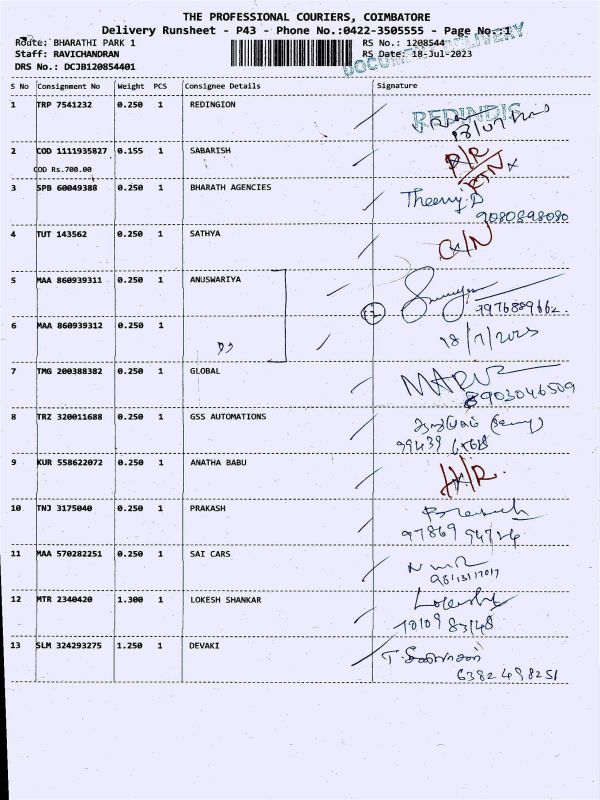 THE PROFESSIONAL COURIERS, COIMBATORE
Delivery Runsheet - P43 - Phone No.:0422-3505555 - Page No.:1
Route: BHARATHI PARK 1 RS No.: 1208544
Staff: RAVICHANDRAN RS Date: 18-Jul-2023
DRS No.: DCJB120854401
DOCUMENT DELIVERY
S No Consignment No Weight PCS Consignee Details Signature
1 TRP 7541232 0.250 1 REDINGION
REDINDIS
2 COD 1111935827 0.155 1 SABARISH
COD Rs.700.00
P/R
RTN
3 SPB 60049388 0.250 1 BHARATH AGENCIES
9080898080
4 TUT 143562 0.250 1 SATHYA
5 MAA 860939311 0.250 1 ANUSWARIYA
7976889662.
6 MAA 860939312 0.250 1
" 18/7/2023
7 TMG 200388382 0.250 1 GLOBAL
8903046509
8 TRZ 320011688 0.250 1 GSS AUTOMATIONS
9 KUR 558622072 0.250 1 ANATHA BABU
10 TNJ 3175040 0.250 1 PRAKASH
97869 94724
11 MAA 570282251 0.250 1 SAI CARS
12 MTR 2340420 1.300 1 LOKESH SHANKAR
13 SLM 324293275 1.250 1 DEVAKI
6382498251